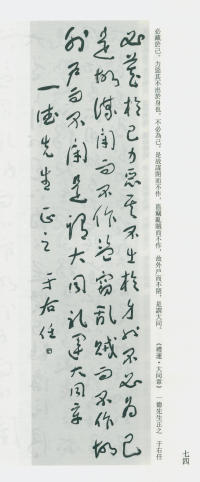 必藏於己，力惡其不出於身也，不必為己，是故謀閉而不作，盜竊亂賊而不作，故外戶而不閉，是謂大同。 《禮運·大同章》 一德先生正之 于右任
必藏於己力惡其不出於身也不必為己
是故謀閉而不作盜竊亂賊而不作故
外戶而不閉是謂大同禮運大同章
一德先生正之 于右任
七四